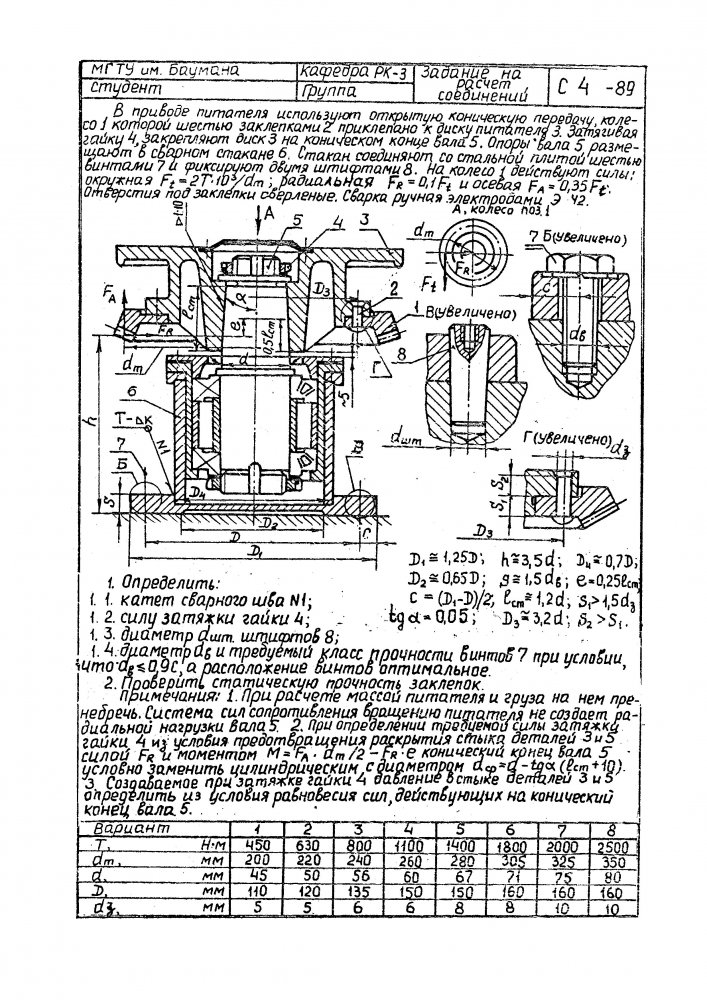 МГТУ им. Баумана
Кафедра РК-3
Задание на расчет соединений
С 4 -89
студент
Группа
В приводе питателя используют открытую коническую передачу, коле-
со 1 которой шестью заклепками 2 приклепано к диску питателя 3. Затягивая
гайку 4, закрепляют диск 3 на коническом конце вала 5. Опоры вала 5 разме-
щают в сварном стакане 6. Стакан соединяют со стальной плитой шестью
винтами 7 и фиксируют двумя штифтами 8. На колесо 1 действуют силы:
окружная Ft=2T·10³/dm; радиальная FR=0,1Ft и осевая FA=0,35Ft.
Отверстия под заклепки сверленые. Сварка ручная электродами Э 42.
A, колесо поз.1
▷1:10
A
5
4
3
dm
FR
Ft
7 Б(увеличено)
c
dв
D3
2
FA
lст
α
e
0,5lст
FR
1
В(увеличено)
8
dm
d
Г
5
h
6
Т-△K
N1
7
Б
В
dшт
Г(увеличено)
dз
S2
S1
D3
S
D4
D2
D
D1
c
D1≅1,25D; h≅3,5d; D4≅0,7D;
D2≅0,65D; g≅1,5dв; e=0,25lст;
c=(D1-D)/2; lст≅1,2d; S1>1,5dз
tgα=0,05; D3≅3,2d; S2>S1.
1. Определить:
1. 1. катет сварного шва N1;
1. 2. силу затяжки гайки 4;
1. 3. диаметр dшт. штифтов 8;
1. 4. диаметр dв и требуемый класс прочности винтов 7 при условии,
что dв≤0,9c, а расположение винтов оптимальное.
2. Проверить статическую прочность заклепок.
Примечания: 1. При расчете массой питателя и груза на нем пре-
небречь. Система сил сопротивления вращению питателя не создает ра-
диальной нагрузки вала 5. 2. При определении требуемой силы затяжки
гайки 4 из условия предотвращения раскрытия стыка деталей 3 и 5
силой FR и моментом M=FA·dm/2-FR·e конический конец вала 5
условно заменить цилиндрическим, с диаметром dср=d-tgα(lст+10).
3. Создаваемое при затяжке гайки 4 давление в стыке деталей 3 и 5
определить из условия равновесия сил, действующих на конический
конец вала 5.
Вариант 1 2 3 4 5 6 7 8
T, Н·м 450 630 800 1100 1400 1800 2000 2500
dm, мм 200 220 240 260 280 305 325 350
d, мм 45 50 56 60 67 71 75 80
D, мм 110 120 135 150 150 160 160 160
dз, мм 5 5 6 6 8 8 10 10